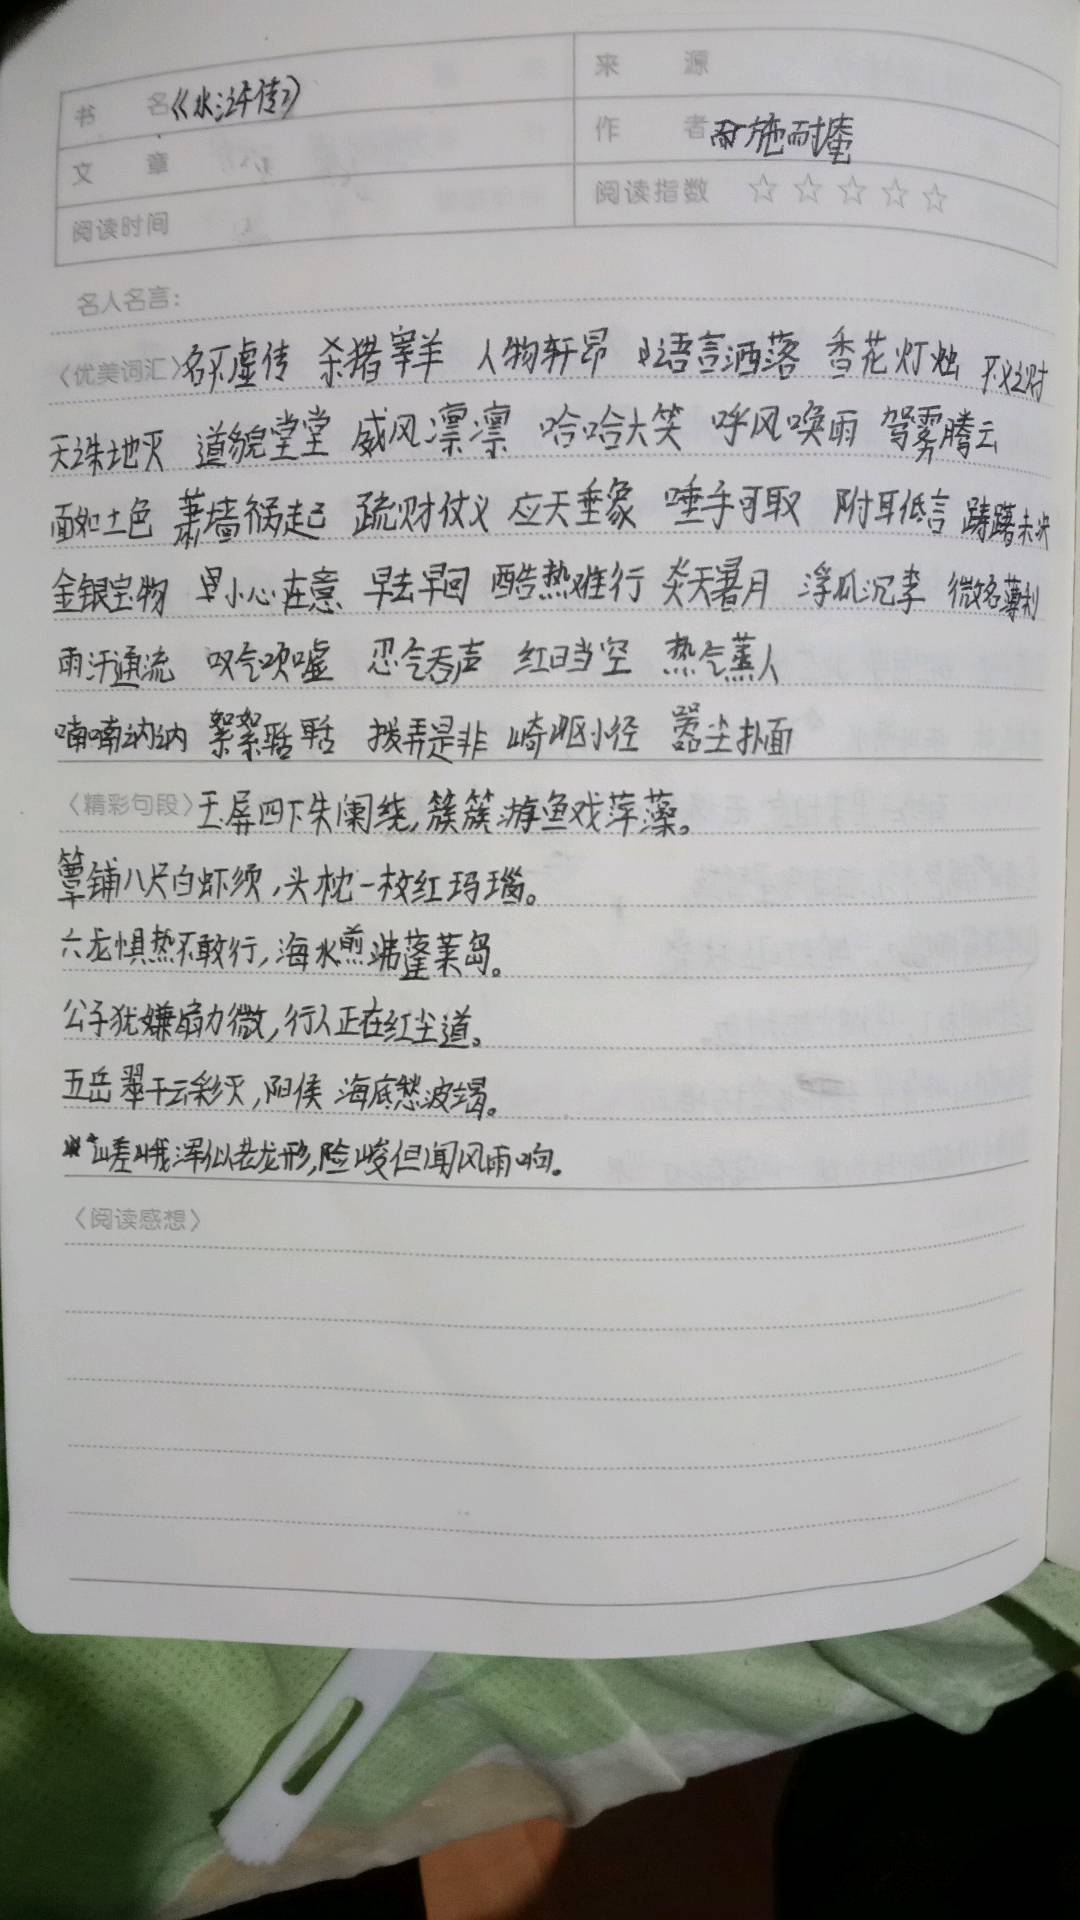 书 名 《水浒传》
来 源
文 章
作 者 施耐庵
阅读时间
阅读指数 ☆☆☆☆☆
名人名言：
〈优美词汇〉名不虚传 杀猪宰羊 人物轩昂 语言洒落 香花灯烛 不义之财
天诛地灭 道貌堂堂 威风凛凛 哈哈大笑 呼风唤雨 驾雾腾云
面如土色 萧墙祸起 疏财仗义 应天垂象 唾手可取 附耳低言 踌躇未决
金银宝物 小心在意 早去早回 酷热难行 炎天暑月 浮瓜沉李 微名薄利
雨汗通流 叹气吹嘘 忍气吞声 红日当空 热气蒸人
喃喃讷讷 絮絮聒聒 拨弄是非 崎岖小径 嚣尘扑面
〈精彩句段〉玉屏四下朱阑绕，簇簇游鱼戏萍藻。
簟铺八尺白虾须，头枕一枚红玛瑙。
六龙惧热不敢行，海水煎沸蓬莱岛。
公子犹嫌扇力微，行人正在红尘道。
五岳翠干云彩灭，阳侯海底愁波竭。
嵯峨浑似老龙形，险峻但闻风雨响。
〈阅读感想〉